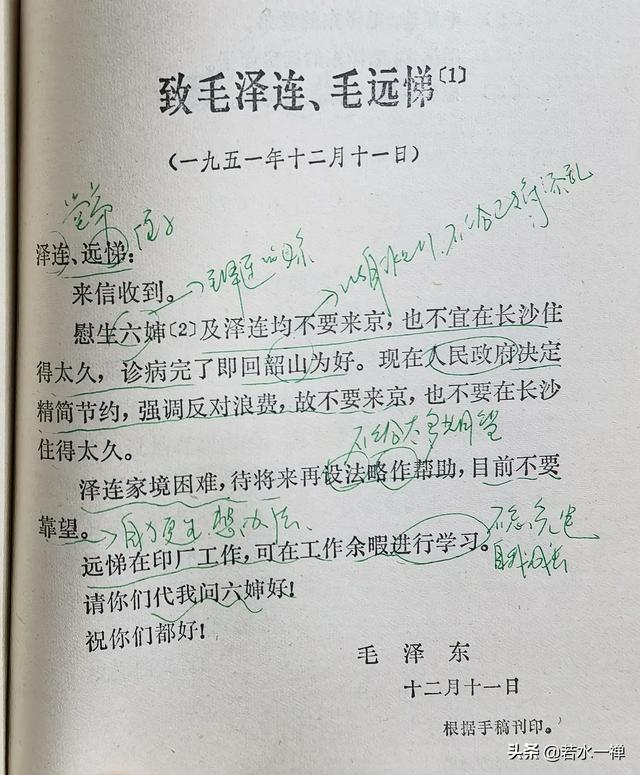 致毛泽连、毛远悌〔1〕
（一九五一年十二月十一日）
堂弟 侄子
泽连、远悌：
来信收到。
慰生六婶〔2〕及泽连均不要来京，也不宜在长沙住
得太久，诊病完了即回韶山为好。现在人民政府决定
精简节约，强调反对浪费，故不要来京，也不要在长沙
住得太久。
泽连家境困难，待将来再设法略作帮助，目前不要
靠望。
自力更生 想办法
远悌在印厂工作，可在工作余暇进行学习。
请你们代我问六婶好！
祝你们都好！
毛 泽 东
十二月十一日
根据手稿刊印。
头条 @若水一禅